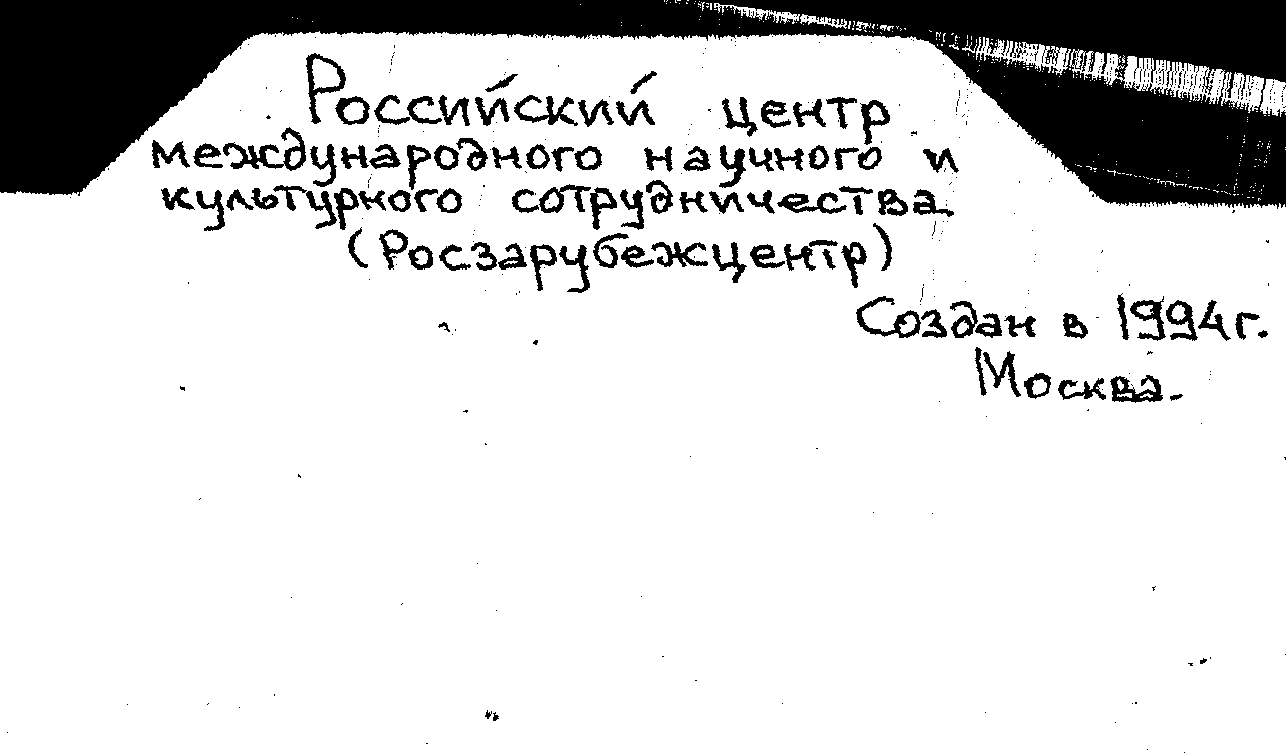 Российский центр
международного научного и
культурного сотрудничества
(Росзарубежцентр)
Создан в 1994г.
Москва.